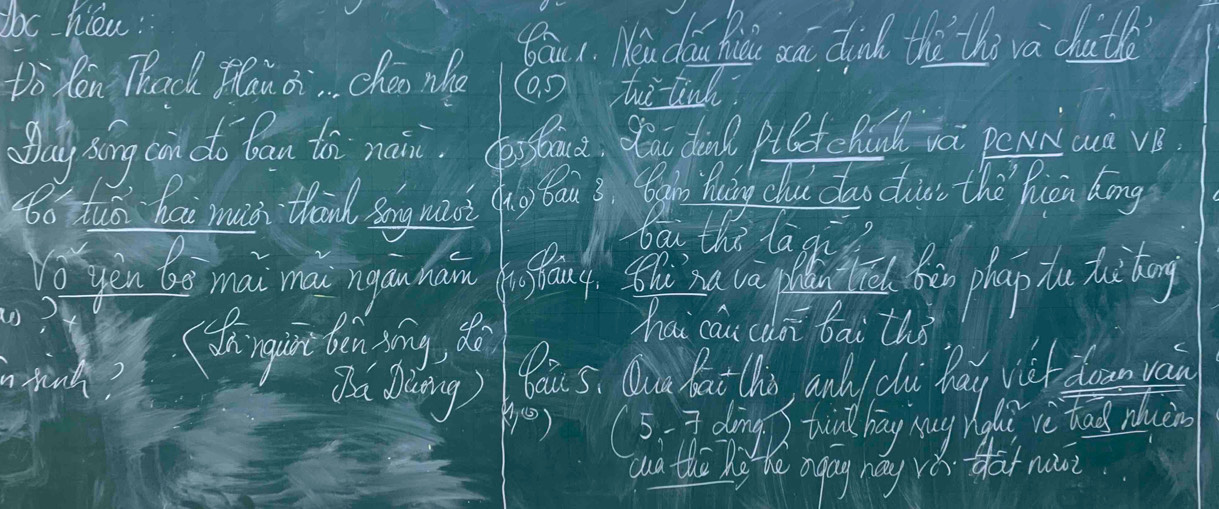 Đọc - hiểu:
Đò lên Thạch Hãn ơi... chèo nhẹ
Đáy sông còn đó bạn tôi nằm.
Có tuổi hai mươi thành sóng nước
Vỗ yên bờ mãi mãi ngàn năm
(Lời người bên sông, Lê
Bá Dương)
sinh?
Câu 1. Nêu dấu hiệu xác định thể thơ và chủ thể
(0,5) trữ tình.
(0,5) Câu 2. Xác định PTBĐ chính và PCNN của VB.
(1,0) Câu 3. Cảm hứng chủ đạo được thể hiện trong
bài thơ là gì?
(1,0) Câu 4. Chỉ ra và phân tích biện pháp tu từ trong
hai câu cuối bài thơ
Câu 5. Qua bài thơ, anh/chị hãy viết đoạn văn
(1,0) (5 - 7 dòng) trình bày suy nghĩ về trách nhiệm
của thế hệ trẻ ngày nay với đất nước.